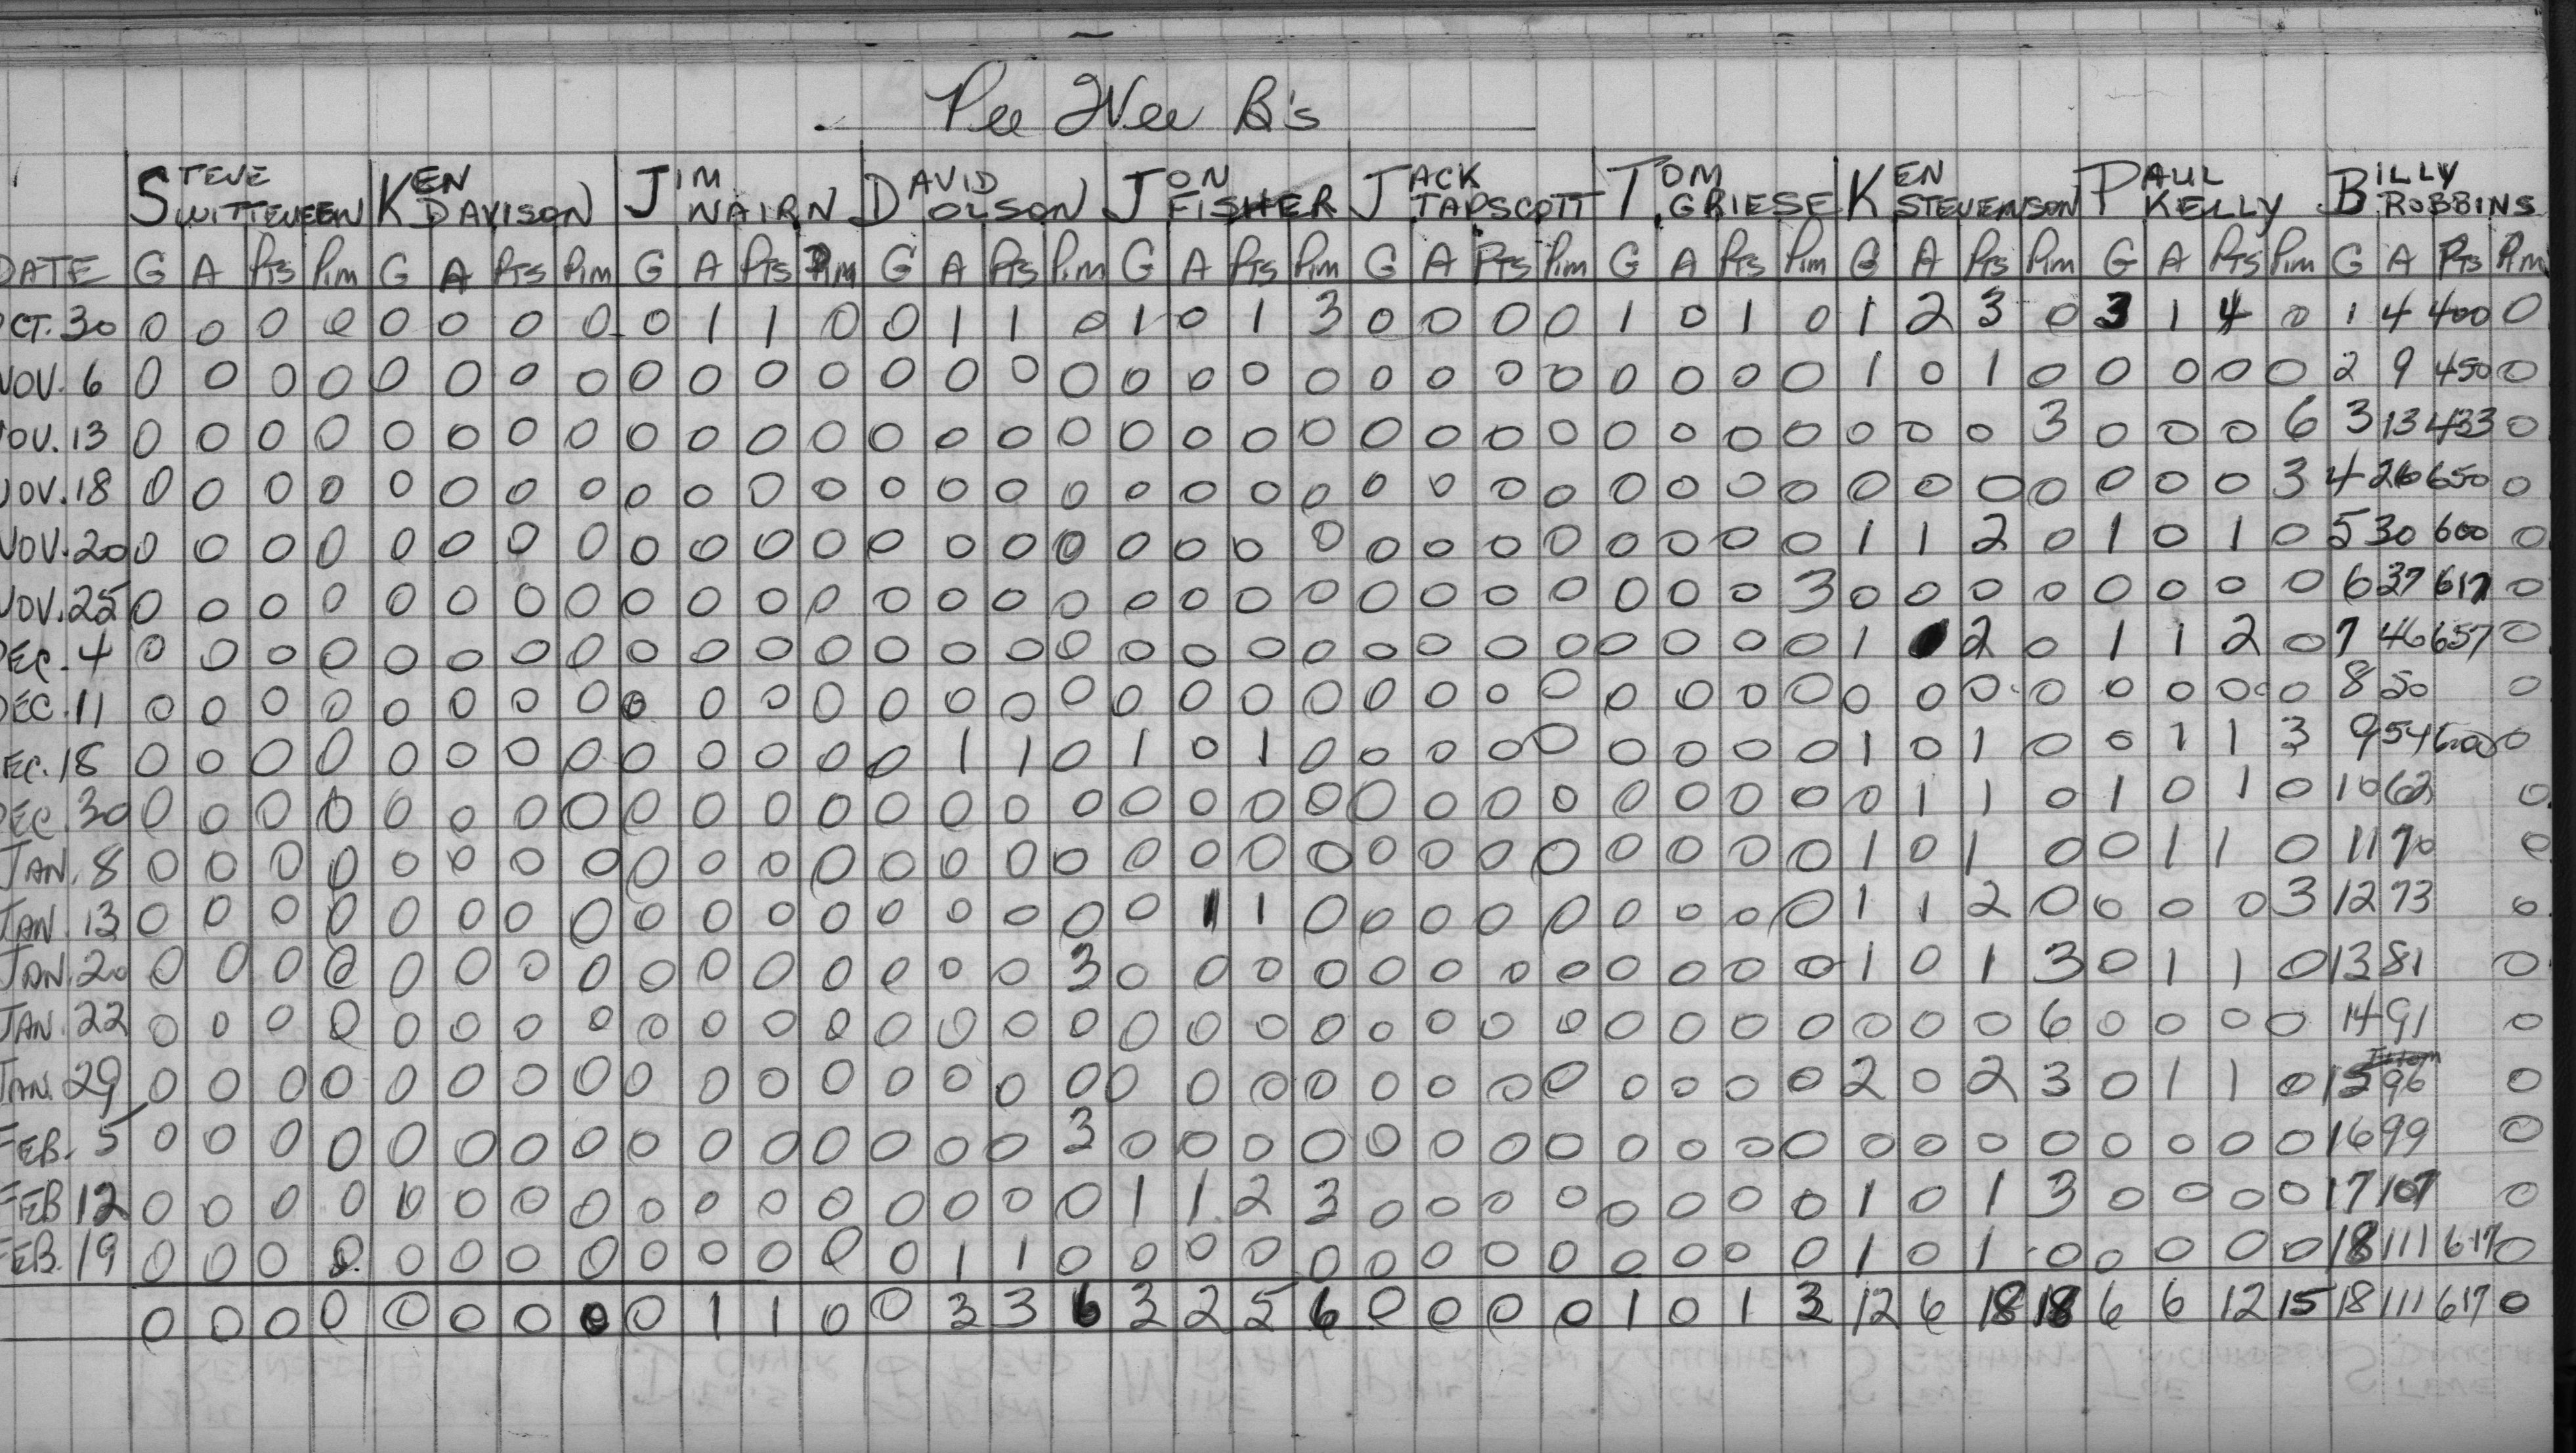 Pee Wee B's
STEVE WITTEVEEN KEN DAVISON JIM NAIRN DAVID OLSON JON FISHER JACK TAPSCOTT TOM GRIESE KEN STEVENSON PAUL KELLY BILLY ROBBINS
DATE G A PTS PIM G A PTS PIM G A PTS PIM G A PTS PIM G A PTS PIM G A PTS PIM G A PTS PIM G A PTS PIM G A PTS PIM G A PTS PIM
OCT. 30 0 0 0 0 0 0 0 0 0 1 1 0 0 1 1 0 1 0 1 3 0 0 0 0 1 0 1 0 1 2 3 0 3 1 4 0 1 4 400 0
NOV. 6 0 0 0 0 0 0 0 0 0 0 0 0 0 0 0 0 0 0 0 0 0 0 0 0 0 0 0 0 1 0 1 0 0 0 0 0 2 9 450 0
NOV. 13 0 0 0 0 0 0 0 0 0 0 0 0 0 0 0 0 0 0 0 0 0 0 0 0 0 0 0 0 0 0 0 3 0 0 0 6 3 13 433 0
NOV. 18 0 0 0 0 0 0 0 0 0 0 0 0 0 0 0 0 0 0 0 0 0 0 0 0 0 0 0 0 0 0 0 0 0 0 0 3 4 26 650 0
NOV. 20 0 0 0 0 0 0 0 0 0 0 0 0 0 0 0 0 0 0 0 0 0 0 0 0 0 0 0 0 1 1 2 0 1 0 1 0 5 30 600 0
NOV. 25 0 0 0 0 0 0 0 0 0 0 0 0 0 0 0 0 0 0 0 0 0 0 0 0 0 0 0 3 0 0 0 0 0 0 0 0 6 37 617 0
DEC. 4 0 0 0 0 0 0 0 0 0 0 0 0 0 0 0 0 0 0 0 0 0 0 0 0 0 0 0 0 1 2 0 1 1 2 0 7 46 657 0
DEC. 11 0 0 0 0 0 0 0 0 0 0 0 0 0 0 0 0 0 0 0 0 0 0 0 0 0 0 0 0 0 0 0 0 0 0 0 0 8 50 0
DEC. 18 0 0 0 0 0 0 0 0 0 0 0 0 0 1 1 0 1 0 1 0 0 0 0 0 0 0 0 0 1 0 1 0 0 1 1 3 9 54 600 0
DEC. 30 0 0 0 0 0 0 0 0 0 0 0 0 0 0 0 0 0 0 0 0 0 0 0 0 0 0 0 0 0 1 1 0 1 0 1 0 10 62 0
JAN. 8 0 0 0 0 0 0 0 0 0 0 0 0 0 0 0 0 0 0 0 0 0 0 0 0 0 0 0 0 1 0 1 0 0 1 1 0 11 70 0
JAN. 13 0 0 0 0 0 0 0 0 0 0 0 0 0 0 0 0 0 1 1 0 0 0 0 0 0 0 0 0 1 1 2 0 0 0 0 3 12 73 0
JAN. 20 0 0 0 0 0 0 0 0 0 0 0 0 0 0 0 3 0 0 0 0 0 0 0 0 0 0 0 0 1 0 1 3 0 1 1 0 13 81 0
JAN. 22 0 0 0 0 0 0 0 0 0 0 0 0 0 0 0 0 0 0 0 0 0 0 0 0 0 0 0 0 0 0 0 6 0 0 0 0 14 91 0
JAN. 29 0 0 0 0 0 0 0 0 0 0 0 0 0 0 0 0 0 0 0 0 0 0 0 0 0 0 0 0 2 0 2 3 0 1 1 0 15 96 0
FEB. 5 0 0 0 0 0 0 0 0 0 0 0 0 0 0 0 3 0 0 0 0 0 0 0 0 0 0 0 0 0 0 0 0 0 0 0 0 16 99 0
FEB 12 0 0 0 0 0 0 0 0 0 0 0 0 0 0 0 0 1 1 2 3 0 0 0 0 0 0 0 0 1 0 1 3 0 0 0 0 17 107 0
FEB. 19 0 0 0 0 0 0 0 0 0 0 0 0 0 1 1 0 0 0 0 0 0 0 0 0 0 0 0 0 1 0 1 0 0 0 0 0 18 111 617 0
0 0 0 0 0 0 0 0 0 1 1 0 0 3 3 6 3 2 5 6 0 0 0 0 1 0 1 3 12 6 18 18 6 6 12 15 18 111 617 0